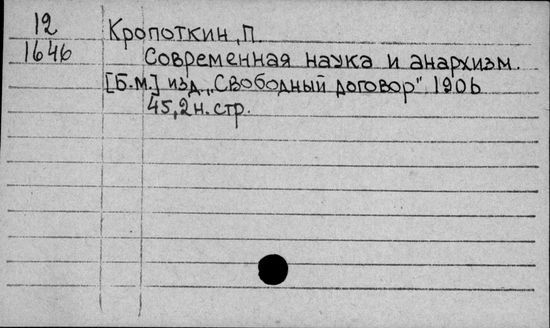 12
1646
Кропоткин, П.
Современная наука и анархизм.
[Б.м.] изд. „Свободный договор" 1906
45, 2 н. стр.